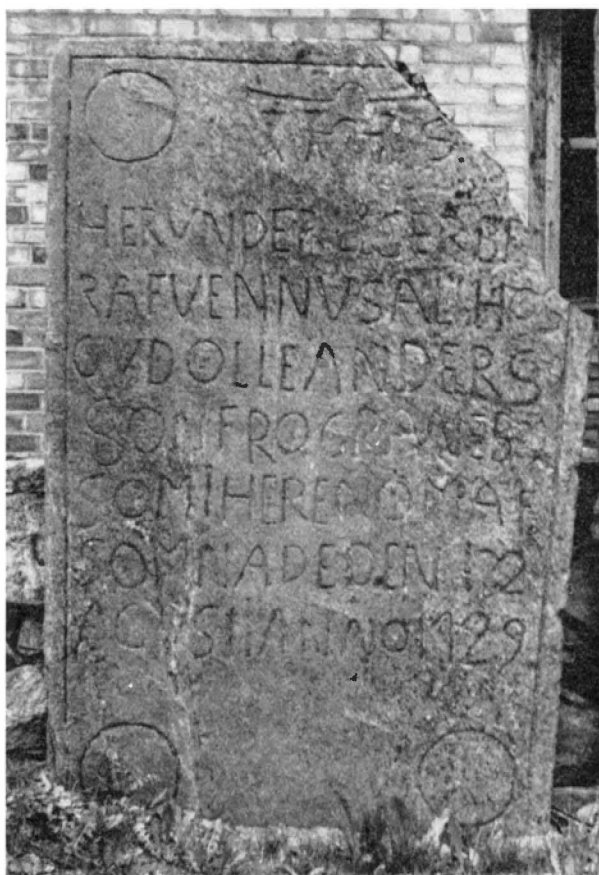 HERVNDER LIGER BE
RAFVEN NVSAL HOS
GVD OLLE ANDERS
SON FRO GRANEB
SOM I HERENOM AF
SOMNADE DEN 122
AGVSTI ANNO 1729